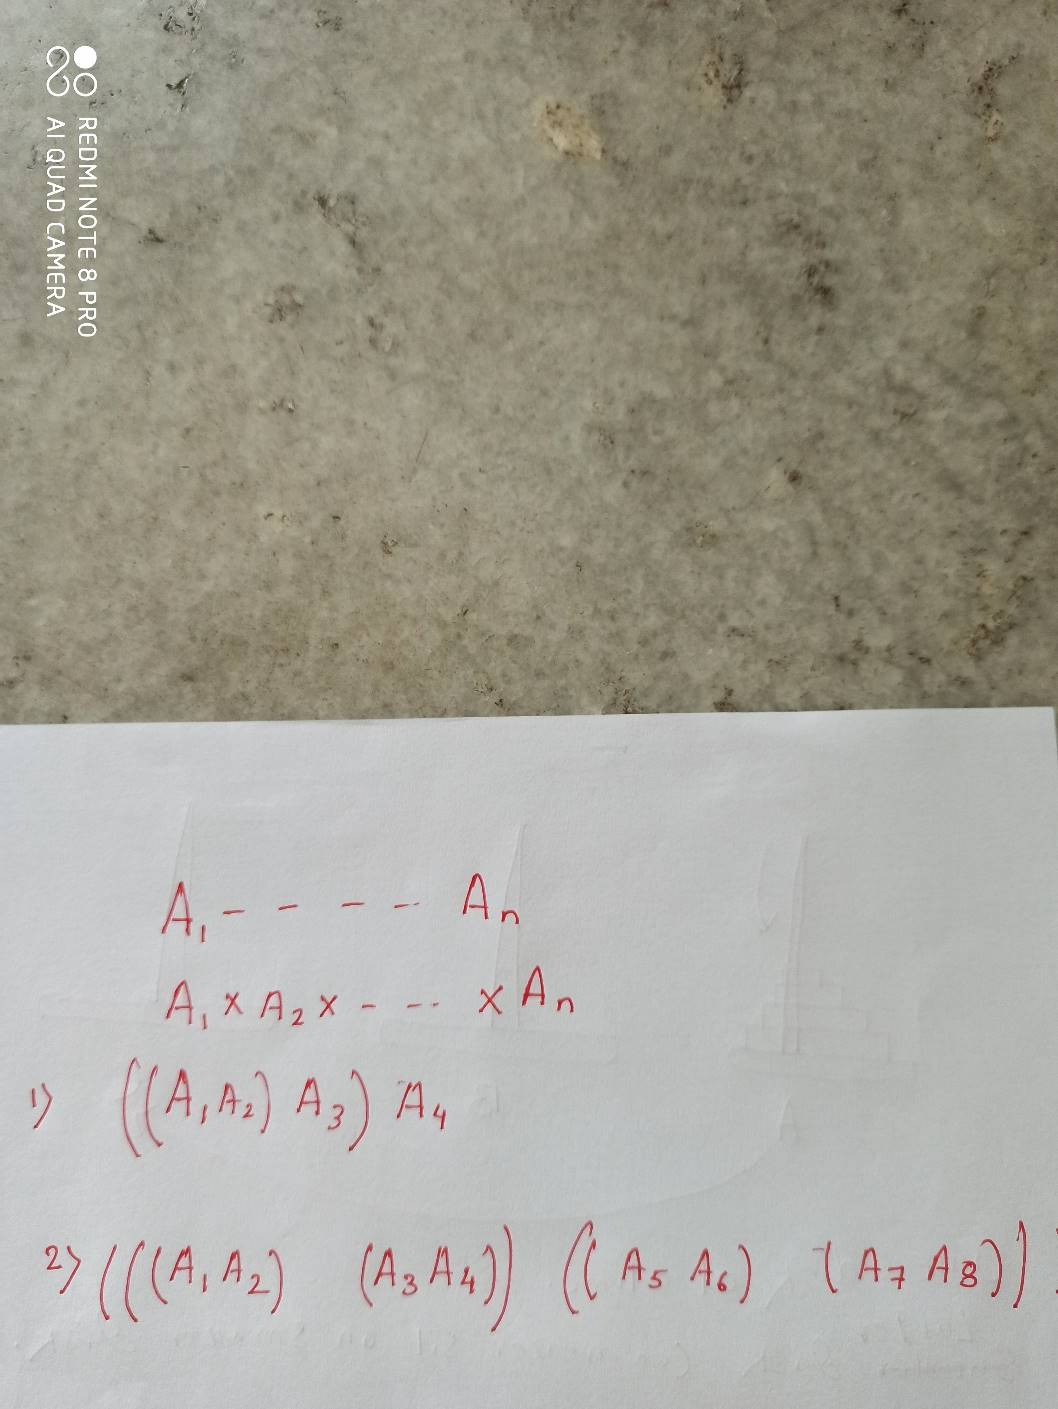 REDMI NOTE 8 PRO
AI QUAD CAMERA
A₁ - - - - Aₙ
A₁ × A₂ × - - - × Aₙ
1) ((A₁ A₂) A₃) A₄
2) (((A₁ A₂) (A₃ A₄)) ((A₅ A₆) (A₇ A₈))